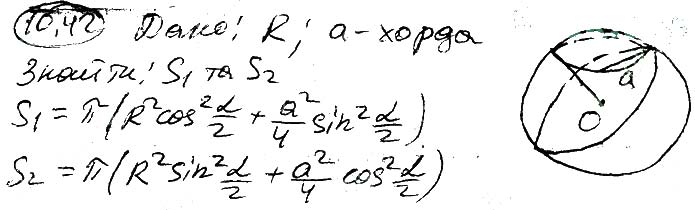 10.42 Дано: R; a-хорда
Знайти: S₁ та S₂
S₁ = π(R²cos²α/2 + a²/4 sin²α/2)
S₂ = π(R²sin²α/2 + a²/4 cos²α/2)
a
O